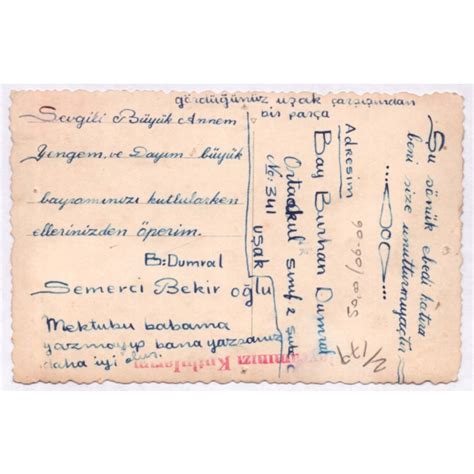 gördüğünüz uşak çarşısından
bir parça
Sevgili Büyük Annem
Yengem, ve Dayım büyük
bayramınızı kutlularken
ellerinizden öperim.
B: Dumral
Semerci Bekir oğlu
Mektubu babama
yazmayıp bana yazsanız
daha iyi olur.
Adresim
Bay Burhan Dumral
Ortaokul sınıf 2 şube
No: 341
uşak
Şu sönük ebedi hatıra
beni size unutturmıyaçtır
Bayramınızı Kutlularım